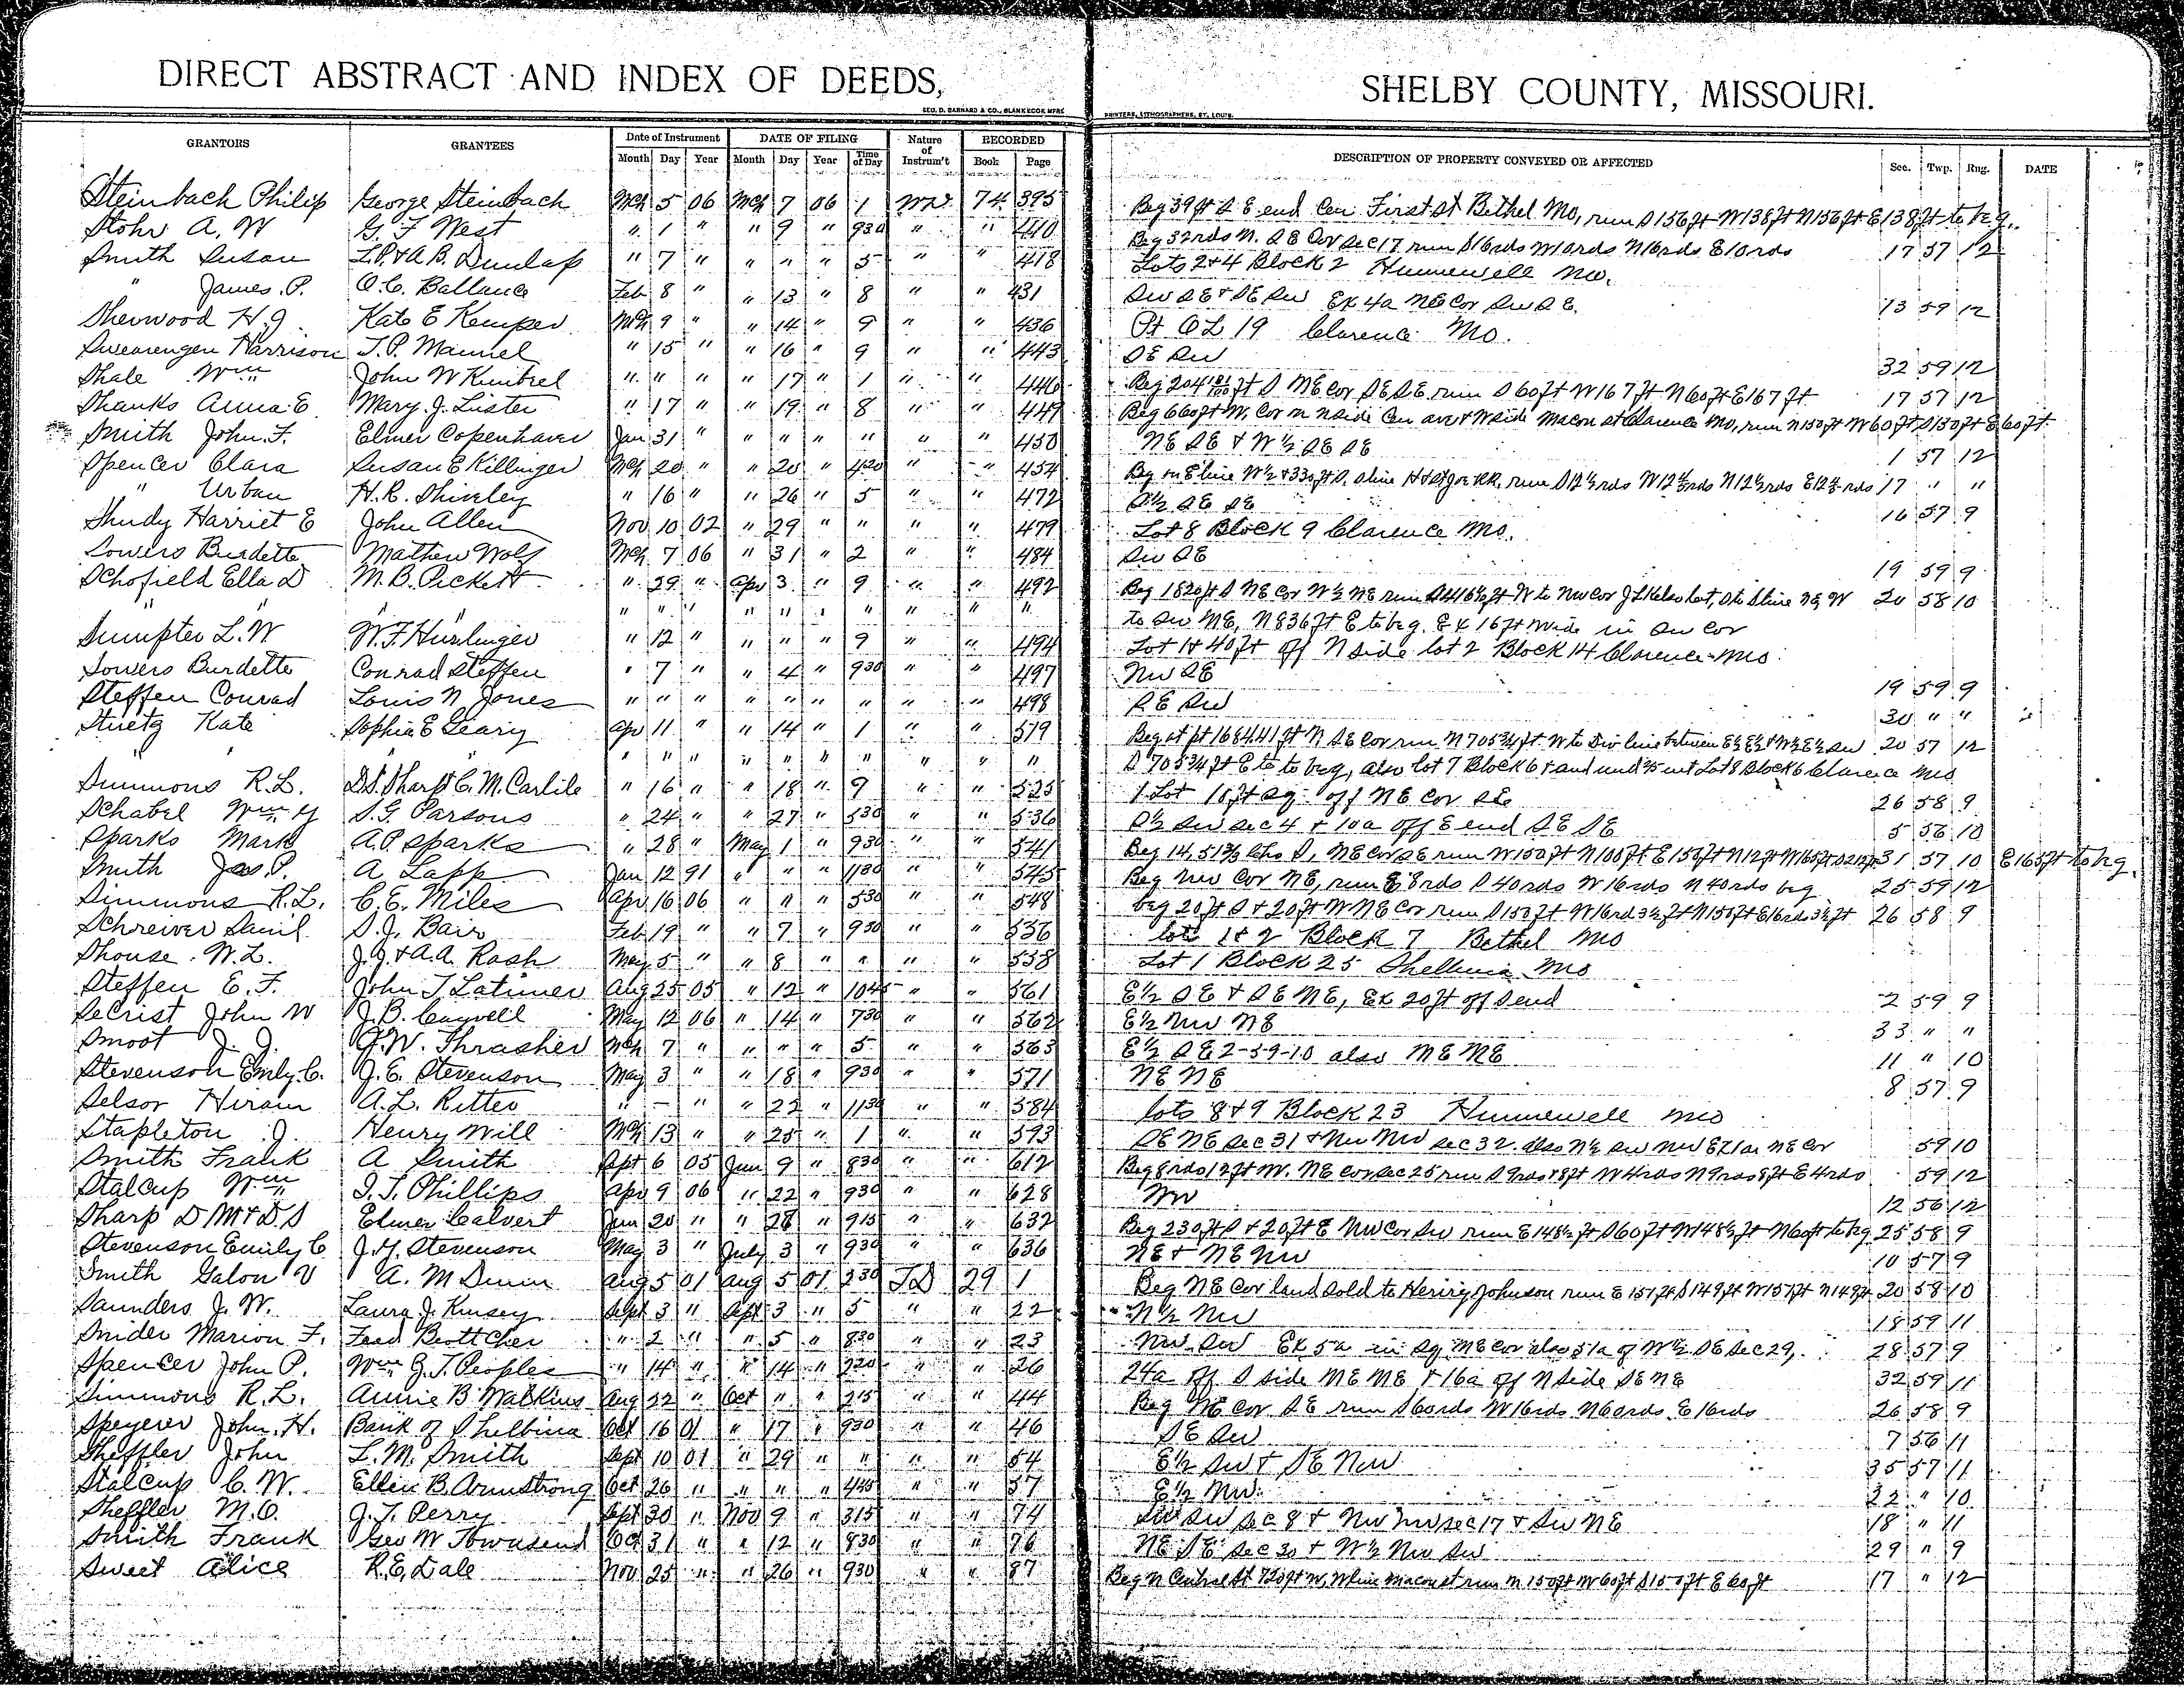 DIRECT ABSTRACT AND INDEX OF DEEDS, SHELBY COUNTY, MISSOURI.
GEO. D. BARNARD & CO., BLANK BOOK MFRS PRINTERS, LITHOGRAPHERS, ST. LOUIS.
GRANTORS GRANTEES Date of Instrument Month Day Year DATE OF FILING Month Day Year Time of Day Nature of Instrum't RECORDED Book Page DESCRIPTION OF PROPERTY CONVEYED OR AFFECTED Sec. Twp. Rng. DATE
Steinbach Philip George Steinbach Mch 5 06 Mch 7 06 1 WD 74 395 Beg 39 ft S E end Cen First St Bethel Mo, run S 156 ft W 138 ft N 156 ft E 138 ft to beg.
Stohr A. W G. F West " 1 " " 9 " 930 " " 410 Beg 32 rds N. S E Cor Sec 17 run S 16 rds W 10 rds N 16 rds E 10 rds 17 57 12
Smith Susan L.P. & A.B. Dunlap " 7 " " " " 5 " " 418 Lots 2 & 4 Block 2 Hunnewell Mo.
" James P. O.C. Ballance Feb 8 " " 13 " 8 " " 431 SW SE & SE SW Ex 4a NE Cor SW SE. 13 59 12
Sherwood H.J. Kate E Kemper Mch 9 " " 14 " 9 " " 436 Pt OL 19 Clarence Mo.
Swearengen Harrison T.P. Manuel " 15 " " 16 " 9 " " 443 SE SW 32 59 12
Shale Wm John W Kimbrel " " " " 17 " 1 " " 446 Beg 204 ft S NE Cor SE SE run S 60 ft W 167 ft N 60 ft E 167 ft 17 57 12
Shanks Anna E. Mary J. Lister " 17 " " 19 " 8 " " 449 Beg 660 ft W. Cor on N side Cen ave & W side Macon st Clarence Mo, run N 150 ft W 60 ft S 150 ft E 60 ft.
Smith John F. Elmer Copenhaver Jan 31 " " " " " " " 450 NE SE & W ½ SE SE 1 57 12
Spencer Clara Susan E Killinger Mch 20 " " 20 " 420 " " 454 Beg on E line W ½ & 330 ft S. S line H & St Joe RR, run S 12 ½ rds W 12 rds N 12 ½ rds E 12 rds 17 " "
" Urban H.R. Shiveley " 16 " " 26 " 5 " " 472 S ½ SE SE 16 57 9
Shudy Harriet E John Allen Nov 10 02 " 29 " " " " 479 Lot 8 Block 9 Clarence Mo.
Sowers Burdette Mathew Wolf Mch 7 06 " 31 " 2 " " 484 SW SE 19 59 9
Schofield Ella D M.B. Pickett " 29 " Apr 3 " 9 " " 492 Beg 1820 ft S NE Cor W ½ NE run S 416 ½ ft W to NW Cor J L Kelso lot, S to S line NE, W 20 58 10
" " " " " " " " " " " " " to SW NE, N 836 ft E to beg. Ex 16 ft wide in SW Cor
Sumpter L. W W.F. Hunlinger " 12 " " " " 9 " " 494 Lot 1 & 40 ft off N side lot 2 Block 14 Clarence Mo.
Sowers Burdette Conrad Steffen " 7 " " 4 " 930 " " 497 NW SE 19 59 9
Steffen Conrad Louis N Jones " " " " " " " " " 498 SE SW 30 " "
Stuetz Kate Sophia E Geary Apr 11 " " 14 " 1 " " 519 Beg at pt 1684.41 ft N SE Cor run N 705 ¾ ft W to Div line between E ½ E ½ & W ½ E ½ SW 20 57 12
" " " " " " " " " " " S 705 ¾ ft E to beg, also lot 7 Block 6 & and und int Lot 8 Block 6 Clarence Mo
Simmons R.L. D.S. Sharp & C. M. Carlile " 16 " " 18 " 9 " " 525 1 Lot 16 ft sq. off NE Cor SE 26 58 9
Schabel Wm Y S.G. Parsons " 24 " " 27 " 530 " " 536 S ½ SW Sec 4 & 10a off E end SE SE 5 56 10
Sparks Mark A.P. Sparks " 28 " May 1 " 930 " " 541 Beg 14.51 chs S, NE Cor SE run W 150 ft N 100 ft E 150 ft N 12 ft W 165 ft S 212 ft 31 57 10 E 165 ft to beg.
Smith Jas P. A Lapp Jan 12 91 " " " 1130 " " 545 Beg NW Cor NE, run E 8 rds S 40 rds W 16 rds N 40 rds beg 25 59 12
Simmons R.L. C.E. Miles Apr 16 06 " " " 530 " " 548 beg 20 ft S & 20 ft W NE Cor run S 150 ft W 16 rd 3 ½ ft N 150 ft E 16 rds 3 ½ ft 26 58 9
Schreiver Saml. S.J. Bair Feb 19 " " 7 " 930 " " 556 lots 1 & 2 Block 7 Bethel Mo
Shouse W.L. J.J. & A.A. Rash May 5 " " 8 " " " " 558 Lot 1 Block 25 Shelbina Mo
Steffen E. F. John T Latimer Aug 25 05 " 12 " 1045 " " 561 E ½ SE & SE NE, Ex 20 ft off S end 2 59 9
Secrist John W J.B. Caswell May 12 06 " 14 " 730 " " 562 E ½ NW NE 33 " "
Smoot J. J. J.W. Thrasher Mch 7 " " " " 5 " " 563 E ½ SE 2-59-10 also NE NE 11 " 10
Stevenson Emily C. J.E. Stevenson May 3 " " 18 " 930 " " 571 NE NE 8 57 9
Selsor Hiram A.L. Ritter " — " " 22 " 1130 " " 584 lots 8 & 9 Block 23 Hunnewell Mo
Stapleton J. Henry Will Mch 13 " " 25 " 1 " " 593 SE NE Sec 31 & NW NW Sec 32. also N ½ SW NW Ex 1a NE Cor 59 10
Smith Frank A Smith Sept 6 05 Jun 9 " 830 " " 612 Beg 8 rds 12 ft W. NE Cor Sec 25 run S 9 rds & 8 ft W 4 rds N 9 rds 8 ft E 4 rds 59 12
Stalcup Wm I.T. Phillips Apr 9 06 " 22 " 930 " " 628 NW 12 56 12
Sharp D M & D.S Elmer Calvert Jun 20 " " 28 " 915 " " 632 Beg 230 ft S & 20 ft E NW Cor SW run E 148 ½ ft S 60 ft W 148 ½ ft N 60 ft to beg. 25 58 9
Stevenson Emily C J.Y. Stevenson May 3 " July 3 " 930 " " 636 NE & NE NW 10 57 9
Smith Galon V A. M Dunn Aug 5 01 Aug 5 01 230 TD 29 1 Beg NE Cor land sold to Henry Johnson run E 157 ft S 149 ft W 157 ft N 149 ft 20 58 10
Saunders J. W. Laura J. Kinsey Sept 3 " Sept 3 " 5 " " 22 N ½ NW 18 59 11
Snider Marion F. Fred Brottcher " 2 " " 5 " 830 " " 23 NW SW Ex 5a in sq NE Cor also 51a of W ½ SE Sec 29, 28 57 9
Spencer John P. Wm G.T. Peoples " 14 " " 14 " 220 " " 26 24a off S side NE NE & 16a off N side SE NE 32 59 11
Simmons R.L. Annie B Watkins Aug 22 " Oct " " 215 " " 44 Beg NE Cor SE run S 60 rds W 16 rds N 60 rds E 16 rds 26 58 9
Speyerer John. H. Bank of Shelbina Oct 16 01 " 17 " 930 " " 46 SE SW 7 56 11
Sheffler John L.M. Smith Sept 10 01 " 29 " " " " 54 E ½ SW & SE NW 35 57 11
Stalcup C. W. Ellen B. Armstrong Oct 26 " " " " 445 " " 57 E ½ NW 22 " 10
Sheffler M.O. J.T. Perry Sept 30 " Nov 9 " 315 " " 74 SW SW Sec 8 & NW NW Sec 17 & SW NE 18 " 11
Smith Frank Geo W Townsend Oct 31 " " 12 " 830 " " 76 NE SE Sec 30 & W ½ NW SW 29 " 9
Sweet Alice R.E. Dale Nov 25 " " 26 " 930 " " 87 Beg N Central St 720 ft W, W line Macon st run N 150 ft W 60 ft S 150 ft E 60 ft 17 " 12